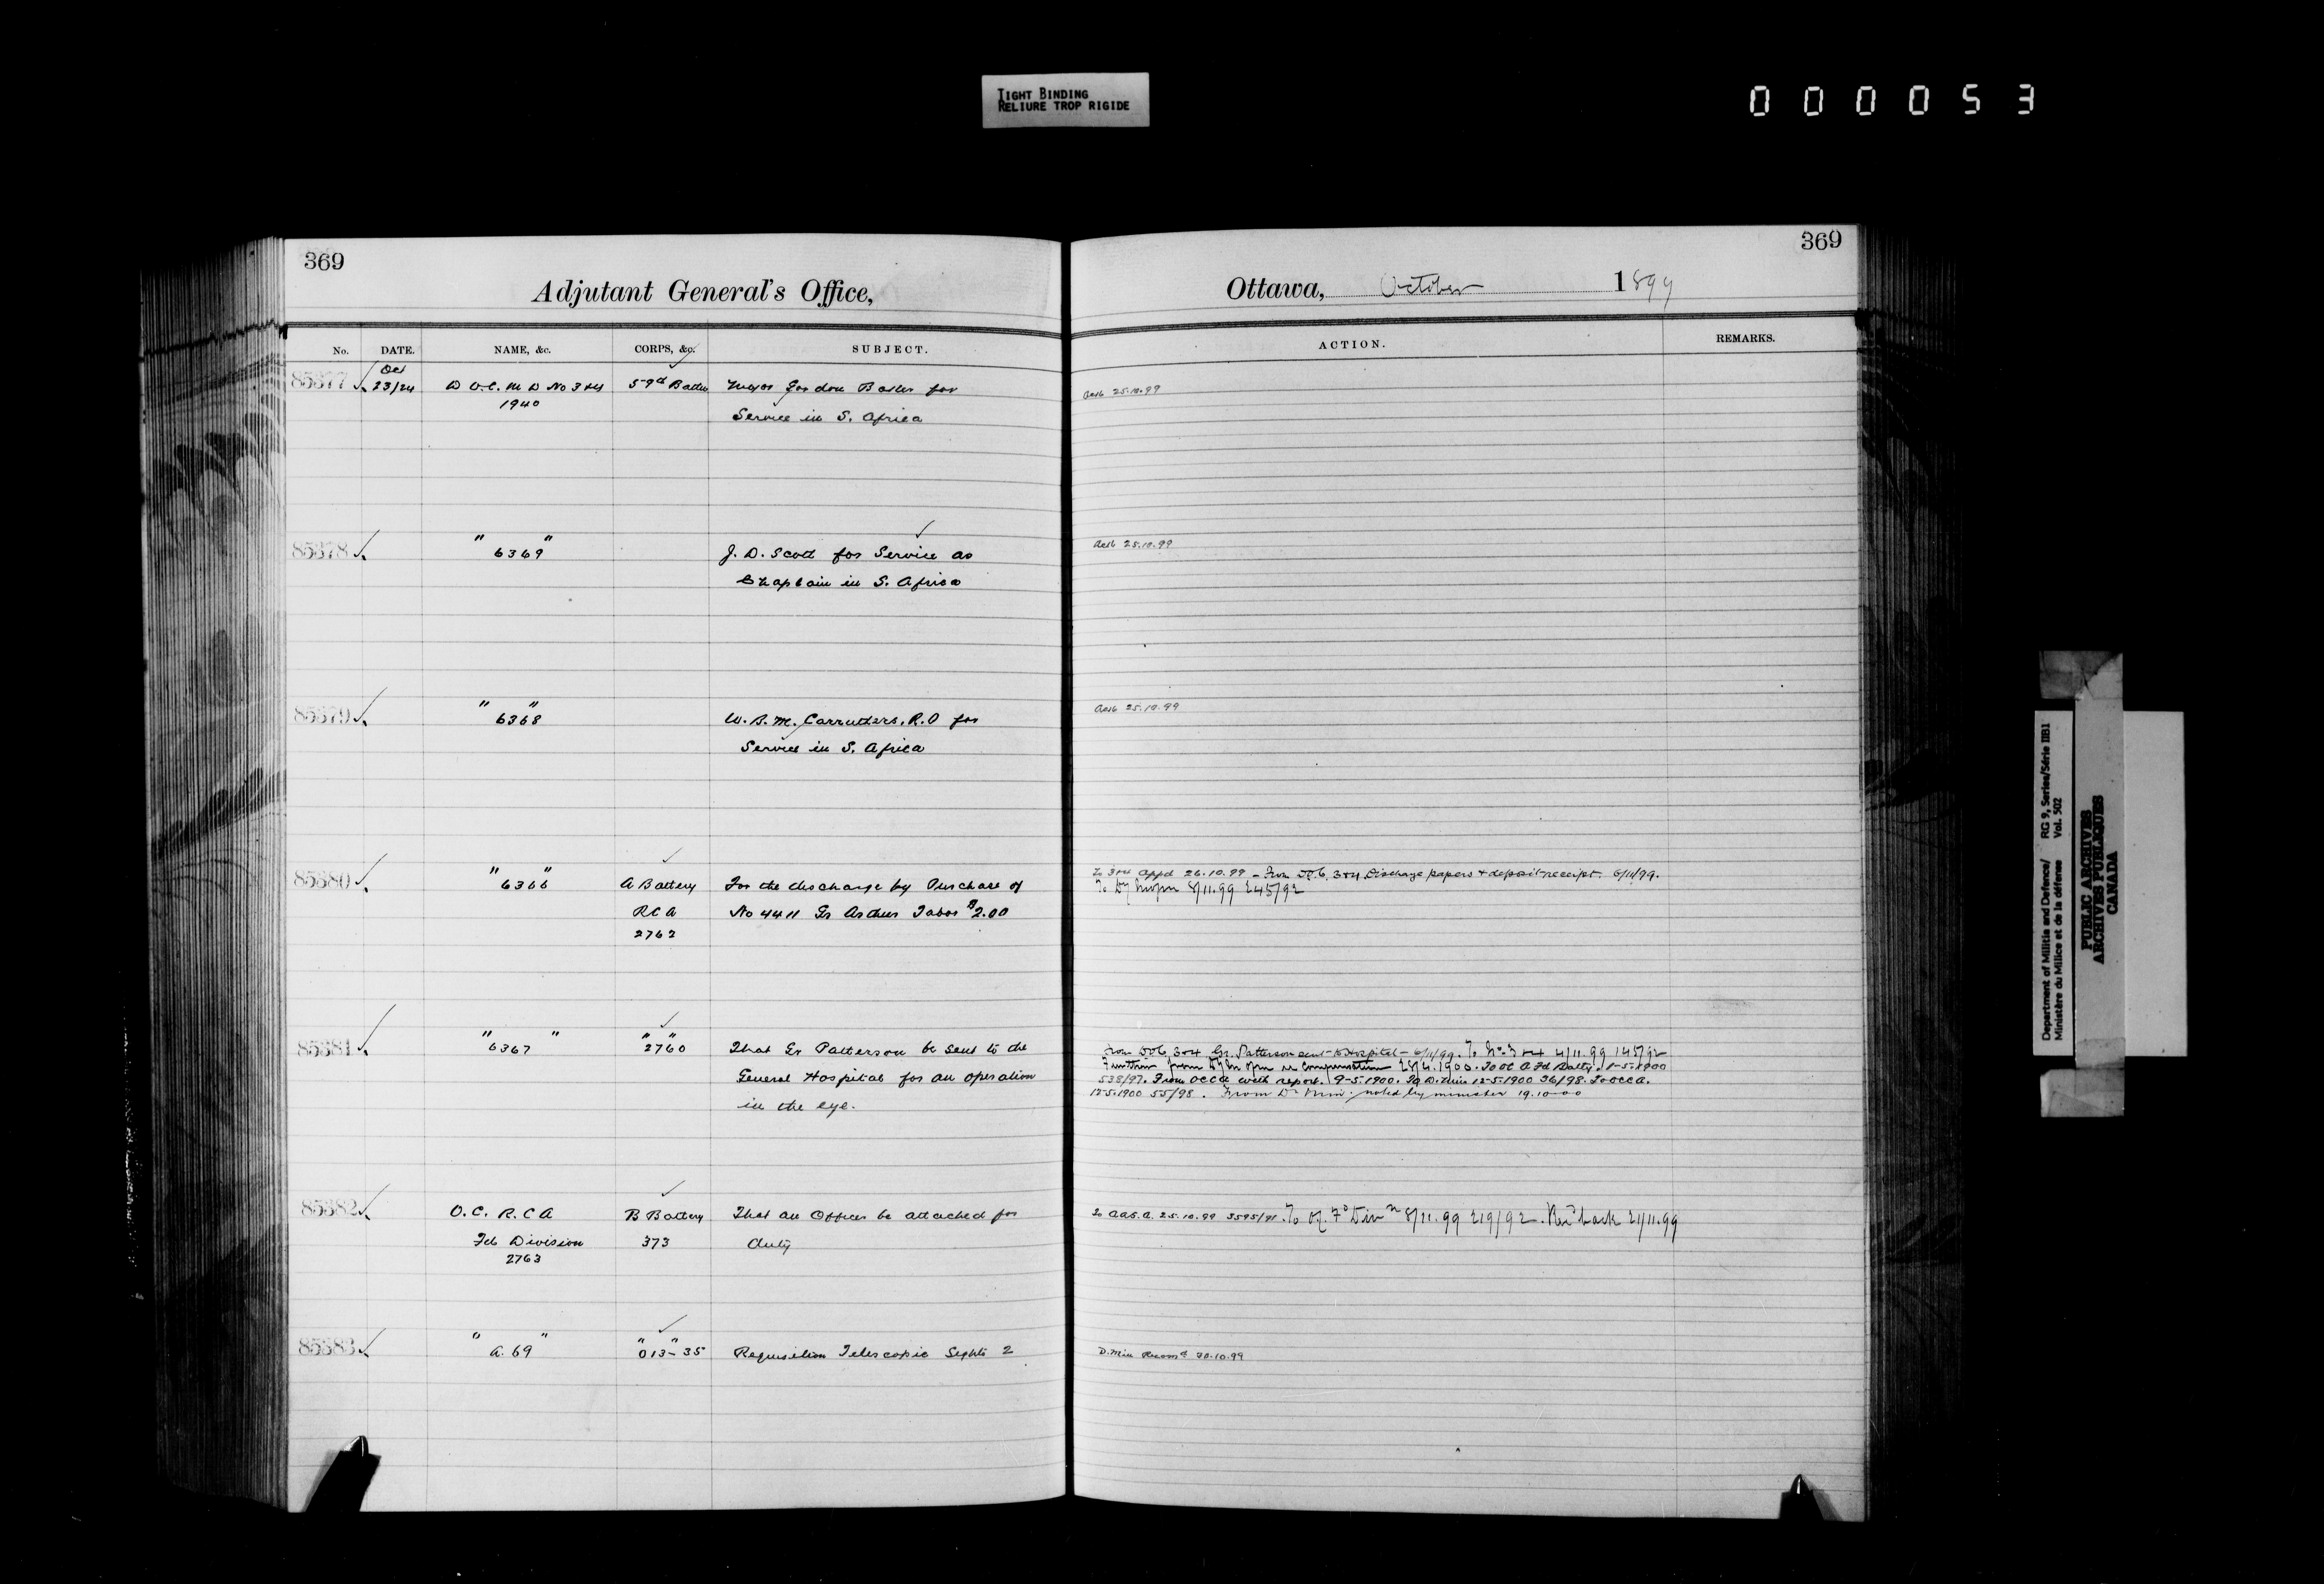 TIGHT BINDING
RELIURE TROP RIGIDE
000053
369
Adjutant General's Office,
No. DATE. NAME, &c. CORPS, &c. SUBJECT.
Oct
85377 23/24 D.O.C. M D No 3 & 4 59th Batln Major Gordon Baker for
1940
Service in S. Africa
85378 " 6369 " J. D. Scott for Service as
Chaplain in S. Africa
85379 " 6368 " W. B. M. Carruthers, R.O for
Service in S. Africa
85380 " 6366 " A Battery For the discharge by Purchase of
RCA No 4411 Gr Arthur Tabor $2.00
2762
85381 " 6367 " " 2760 " That Gr Patterson be sent to the
General Hospital for an operation
in the eye.
85382 O. C. R. C A B Battery That an Officer be attached for
Fd Division 373 duty
2763
85383 " A. 69 " " 013-35 " Requisition Telescopic Sights 2
369
Ottawa, October 1899
ACTION. REMARKS.
25.10.99
25.10.99
25.10.99
To 3&4 appd 26.10.99 - From DOC 3&4 Discharge papers & deposit receipt. 6/11/99.
8/11.99 245/92
From DOC 3&4 Gr. Patterson sent to Hospital - 6/11/99. To No. 3&4 4/11.99 145/92
from re Compensation 28/4.1900. To OC A Fd Batty. 1-5-1900
538/97. From OCCA with report. 9-5-1900. To D. Min 12-5-1900 36/98. To OCCA.
12-5-1900 55/98. From D. Min. noted by minister 19.10.00
To A.A.G.A. 25.10.99 3595/91. To Fd Divn 8/11.99 219/92. Recd back 21/11.99
D. Min 30.10.99
Department of Militia and Defence/ RG 9, Series/Série IIB1
Ministère du Milice et de la défense Vol. 502
PUBLIC ARCHIVES
ARCHIVES PUBLIQUES
CANADA